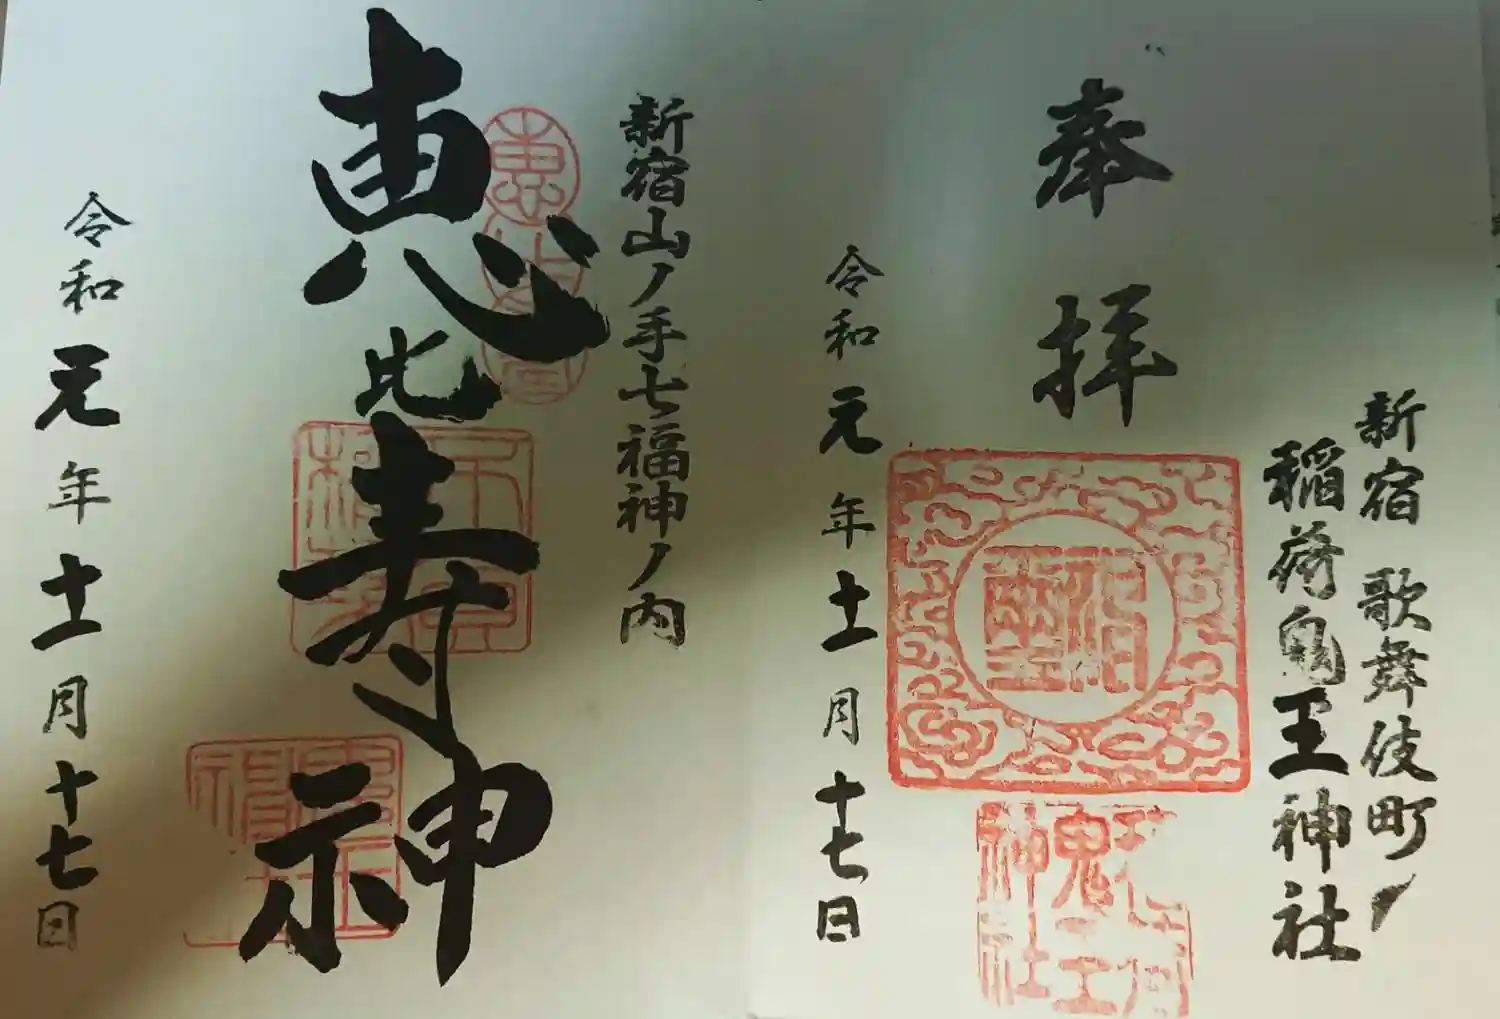 新宿 歌舞伎町ノ
稲荷鬼王神社
奉拝
令和元年十一月十七日
新宿山ノ手七福神ノ内
恵比寿神
令和元年十一月十七日